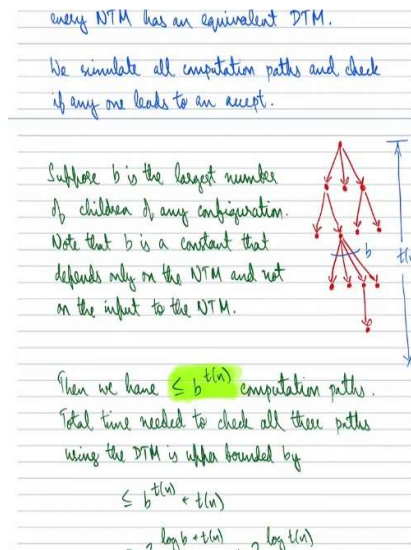 every NTM has an equivalent DTM.
We simulate all computation paths and check
if any one leads to an accept.
Suppose b is the largest number
of children of any configuration.
Note that b is a constant that
depends only on the NTM and not
on the input to the NTM.
b
Then we have ≤ b^t(n) computation paths.
Total time needed to check all these paths
using the DTM is upper bounded by
≤ b^t(n) * t(n)